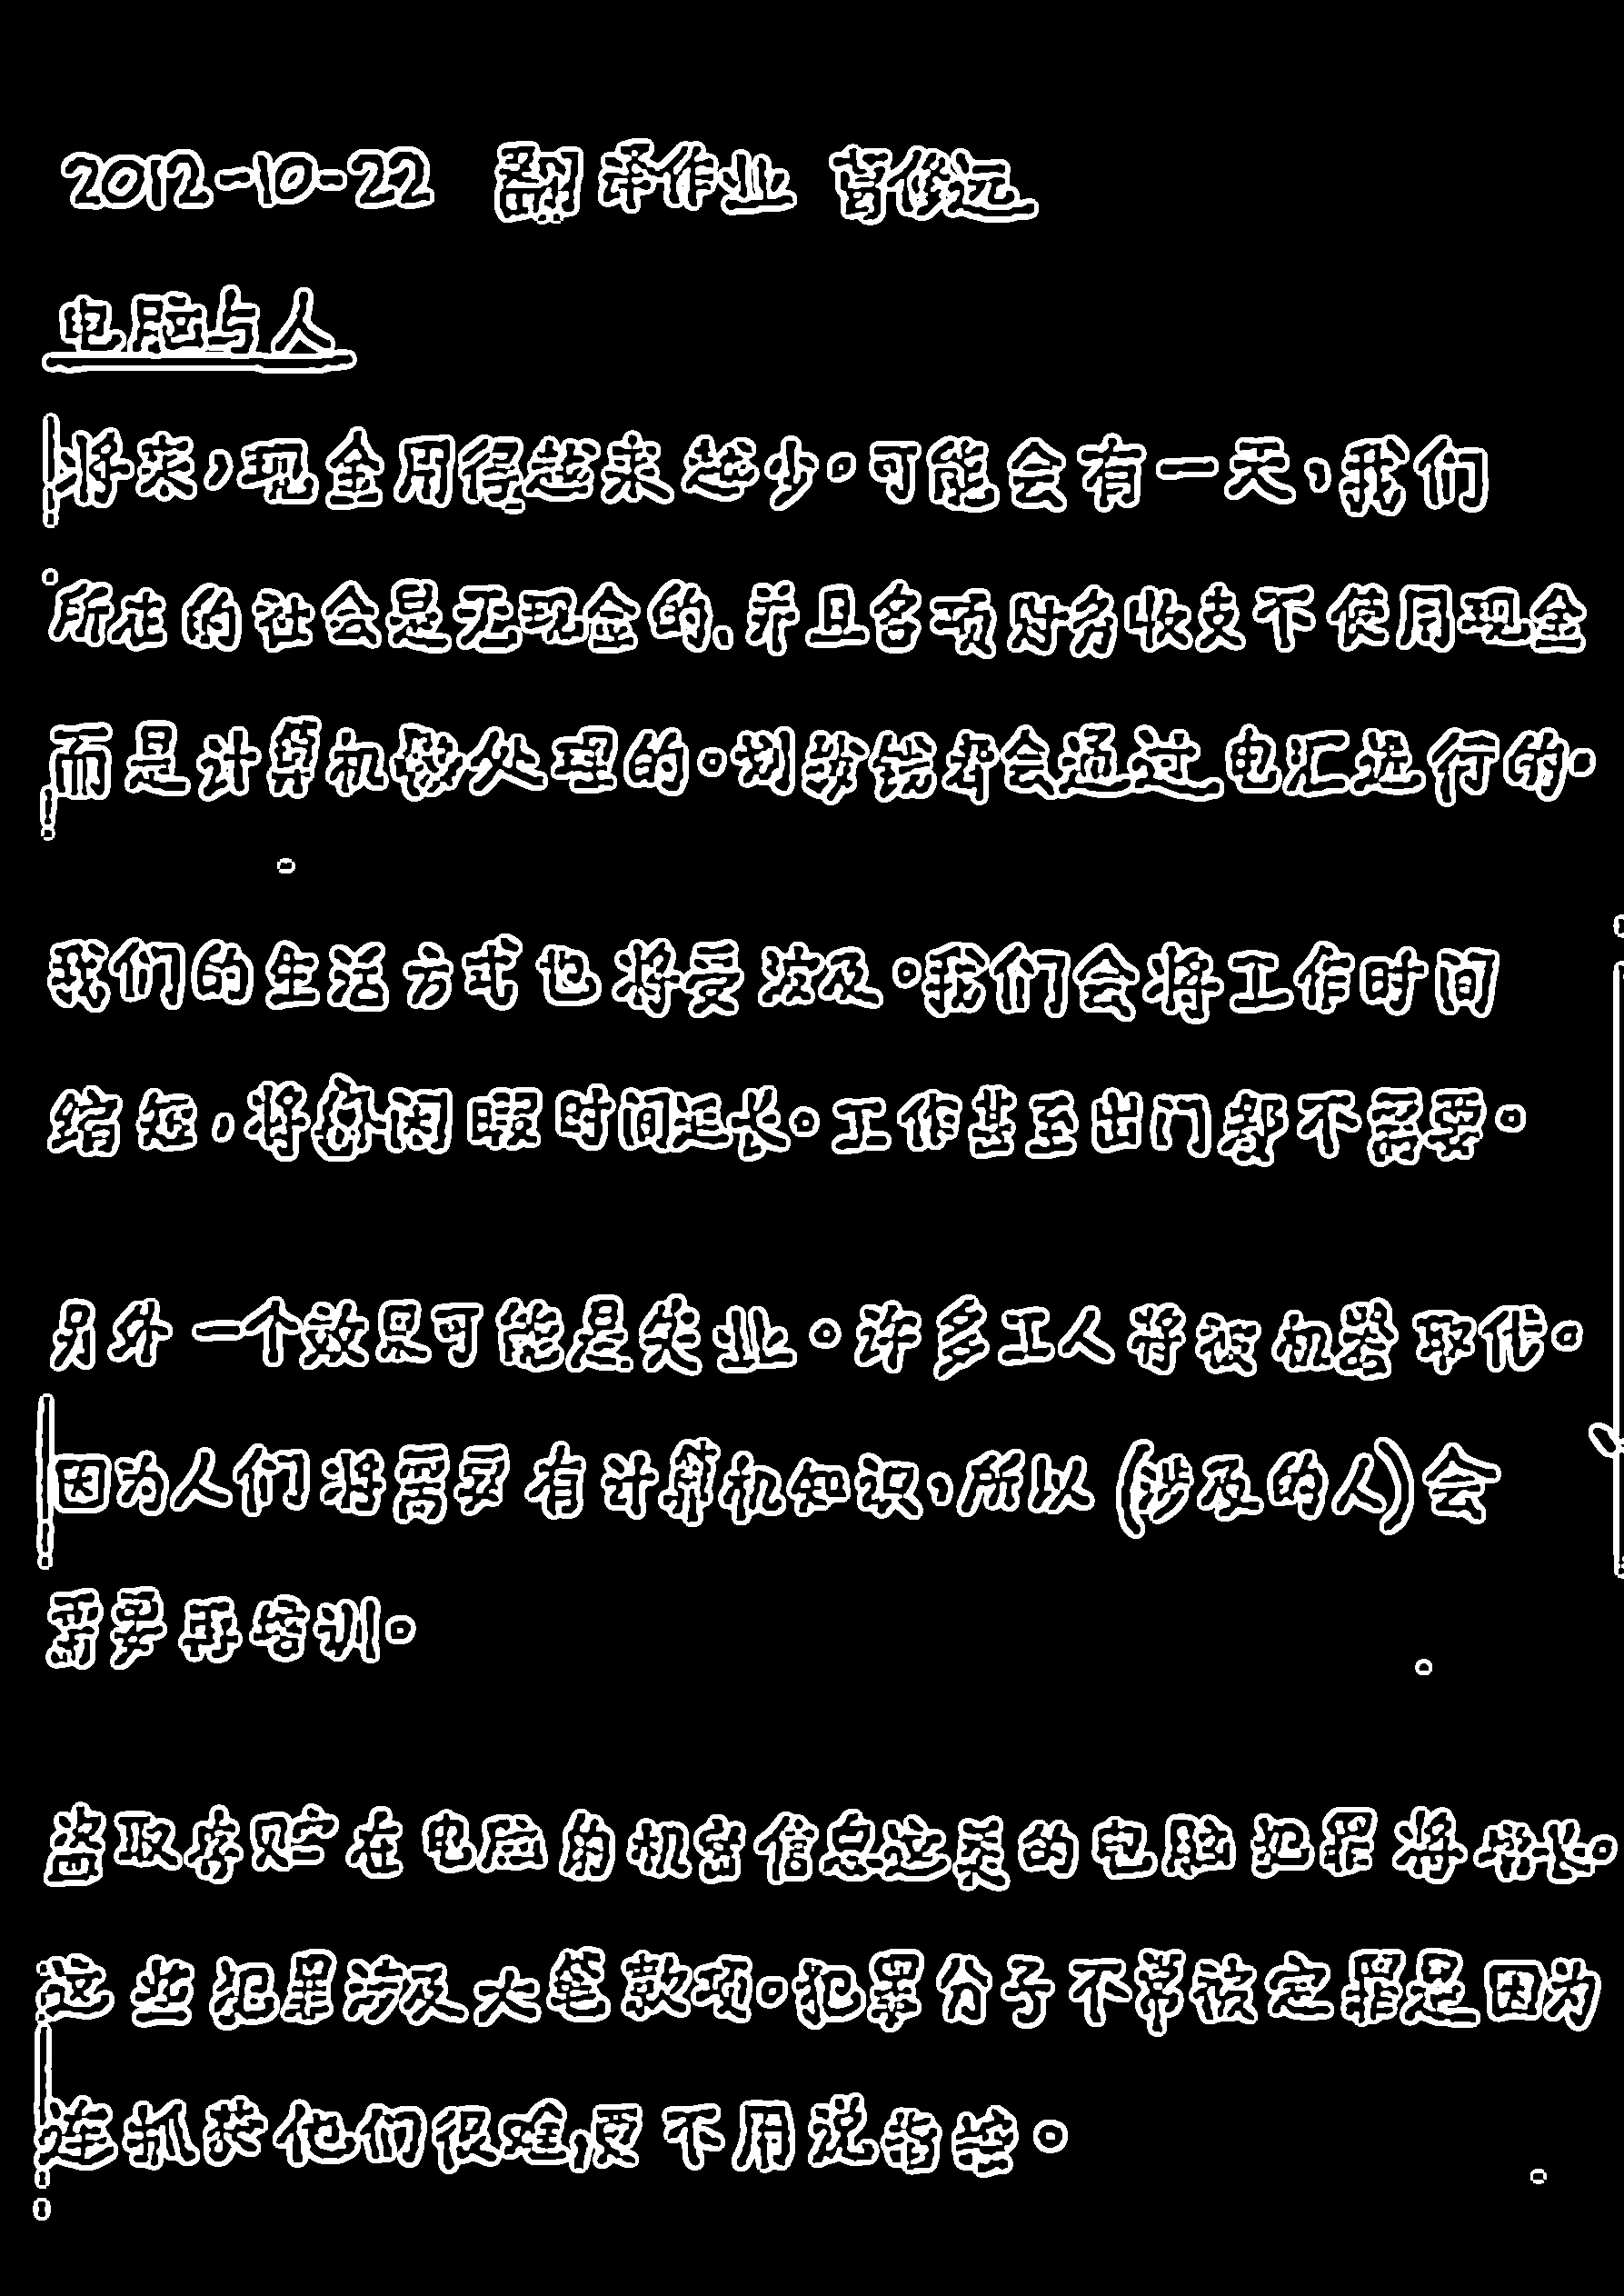 2012-10-22 翻译作业 修远
电脑与人
将来，现金用得越来越少。可能会有一天，我们
所走的社会是无现金的、并且各项财务收支不使用现金
而是计算机处理的。划拨钱都会通过电汇进行的。
我们的生活方式也将受波及。我们会将工作时间
缩短，将闲暇时间延长。工作甚至出门都不需要。
另外一个效果可能是失业。许多工人将被机器取代。
因为人们将需要有计算机知识，所以(涉及的人)会
需要再培训。
盗取存贮在电脑的机密信息这类的电脑犯罪将增长。
这些犯罪涉及大笔款项。犯罪分子不常被定罪是因为
连抓获他们很难，更不用说指控。